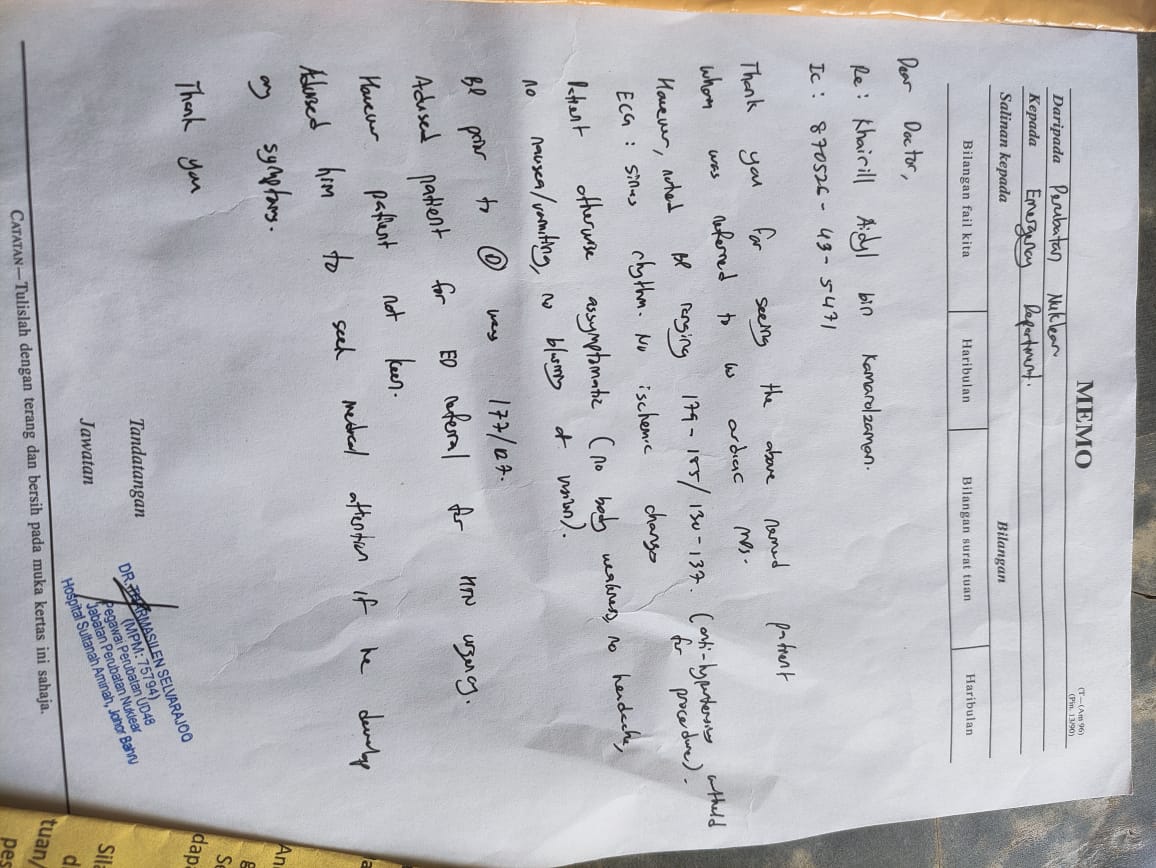 MEMO
(T—(Am 96)
(Pin. 13/90)
Daripada Perubatan Nuklear
Kepada Emergency Department.
Salinan kepada Bilangan
Bilangan fail kita Haribulan Bilangan surat tuan Haribulan
Dear Doctor,
Re: Khairill Aidyl bin Kamarolzaman.
Ic: 870526-43-5471
Thank you for seeing the above named patient
whom was referred to us cardiac
However, noted BP ranging 179-185/130-137. (anti-hypertensives withheld
for procedure).
ECG: sinus rhythm. No ischemic changes
Patient otherwise assymptomatic (no body weakness, no headache,
no nausea/vomiting, no blurring of vision).
BP prior to Ⓓ was 177/127.
Advised patient for ED referral for HTN urgency.
However patient not keen.
Advised him to seek medical attention if he develop
any symptoms.
Thank you
Tandatangan
Jawatan
DR. THARMASILEN SELVARAJOO
(MPM: 75794)
Pegawai Perubatan UD48
Jabatan Perubatan Nuklear
Hospital Sultanah Aminah, Johor Bahru
CATATAN—Tulislah dengan terang dan bersih pada muka kertas ini sahaja.
An
dap
Sila
tuan/